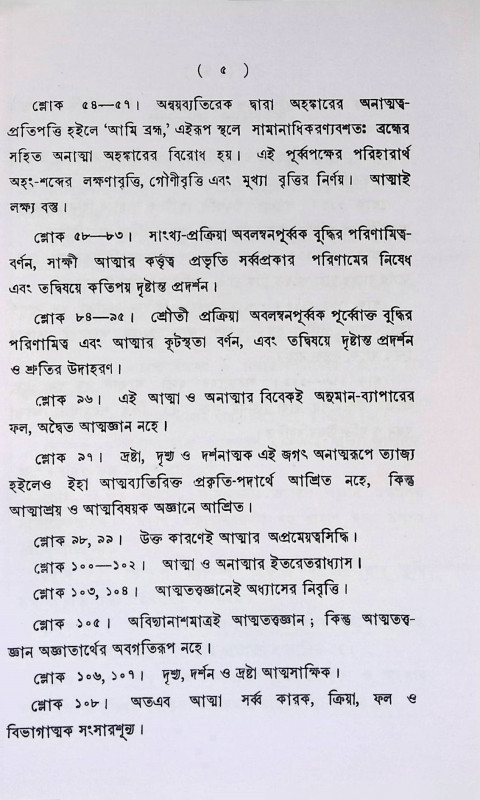 ( ৫ )
শ্লোক ৫৪—৫৭। অন্বয়ব্যতিরেক দ্বারা অহঙ্কারের অনাত্মত্ব-
প্রতিপত্তি হইলে ‘আমি ব্রহ্ম,’ এইরূপ স্থলে সামানাধিকরণ্যবশতঃ ব্রহ্মের
সহিত অনাত্মা অহঙ্কারের বিরোধ হয়। এই পূর্ব্বপক্ষের পরিহারার্থ
অহং-শব্দের লক্ষণাবৃত্তি, গৌণীবৃত্তি এবং মুখ্যা বৃত্তির নির্ণয়। আত্মাই
লক্ষ্য বস্তু।
শ্লোক ৫৮—৮৩। সাংখ্য-প্রক্রিয়া অবলম্বনপূর্ব্বক বুদ্ধির পরিণামিত্ব-
বর্ণন, সাক্ষী আত্মার কর্তৃত্ব প্রভৃতি সর্ব্বপ্রকার পরিণামের নিষেধ
এবং তদ্বিষয়ে কতিপয় দৃষ্টান্ত প্রদর্শন।
শ্লোক ৮৪—৯৫। শ্রৌতী প্রক্রিয়া অবলম্বনপূর্ব্বক পূর্ব্বোক্ত বুদ্ধির
পরিণামিত্ব এবং আত্মার কূটস্থতা বর্ণন, এবং তদ্বিষয়ে দৃষ্টান্ত প্রদর্শন
ও শ্রুতির উদাহরণ।
শ্লোক ৯৬। এই আত্মা ও অনাত্মার বিবেকই অনুমান-ব্যাপারের
ফল, অদ্বৈত আত্মজ্ঞান নহে।
শ্লোক ৯৭। দ্রষ্টা, দৃশ্য ও দর্শনাত্মক এই জগৎ অনাত্মরূপে ত্যাজ্য
হইলেও ইহা আত্মব্যতিরিক্ত প্রকৃতি-পদার্থে আশ্রিত নহে, কিন্তু
আত্মাশ্রয় ও আত্মবিষয়ক অজ্ঞানে আশ্রিত।
শ্লোক ৯৮, ৯৯। উক্ত কারণেই আত্মার অপ্রমেয়ত্বসিদ্ধি।
শ্লোক ১০০—১০২। আত্মা ও অনাত্মার ইতরেতরাধ্যাস।
শ্লোক ১০৩, ১০৪। আত্মতত্ত্বজ্ঞানেই অধ্যাসের নিবৃত্তি।
শ্লোক ১০৫। অবিদ্যানাশমাত্রই আত্মতত্ত্বজ্ঞান ; কিন্তু আত্মতত্ত্ব-
জ্ঞান অজ্ঞাতার্থের অবগতিরূপ নহে।
শ্লোক ১০৬, ১০৭। দৃশ্য, দর্শন ও দ্রষ্টা আত্মসাক্ষিক।
শ্লোক ১০৮। অতএব আত্মা সর্ব্ব কারক, ক্রিয়া, ফল ও
বিভাগাত্মক সংসারশূন্য।